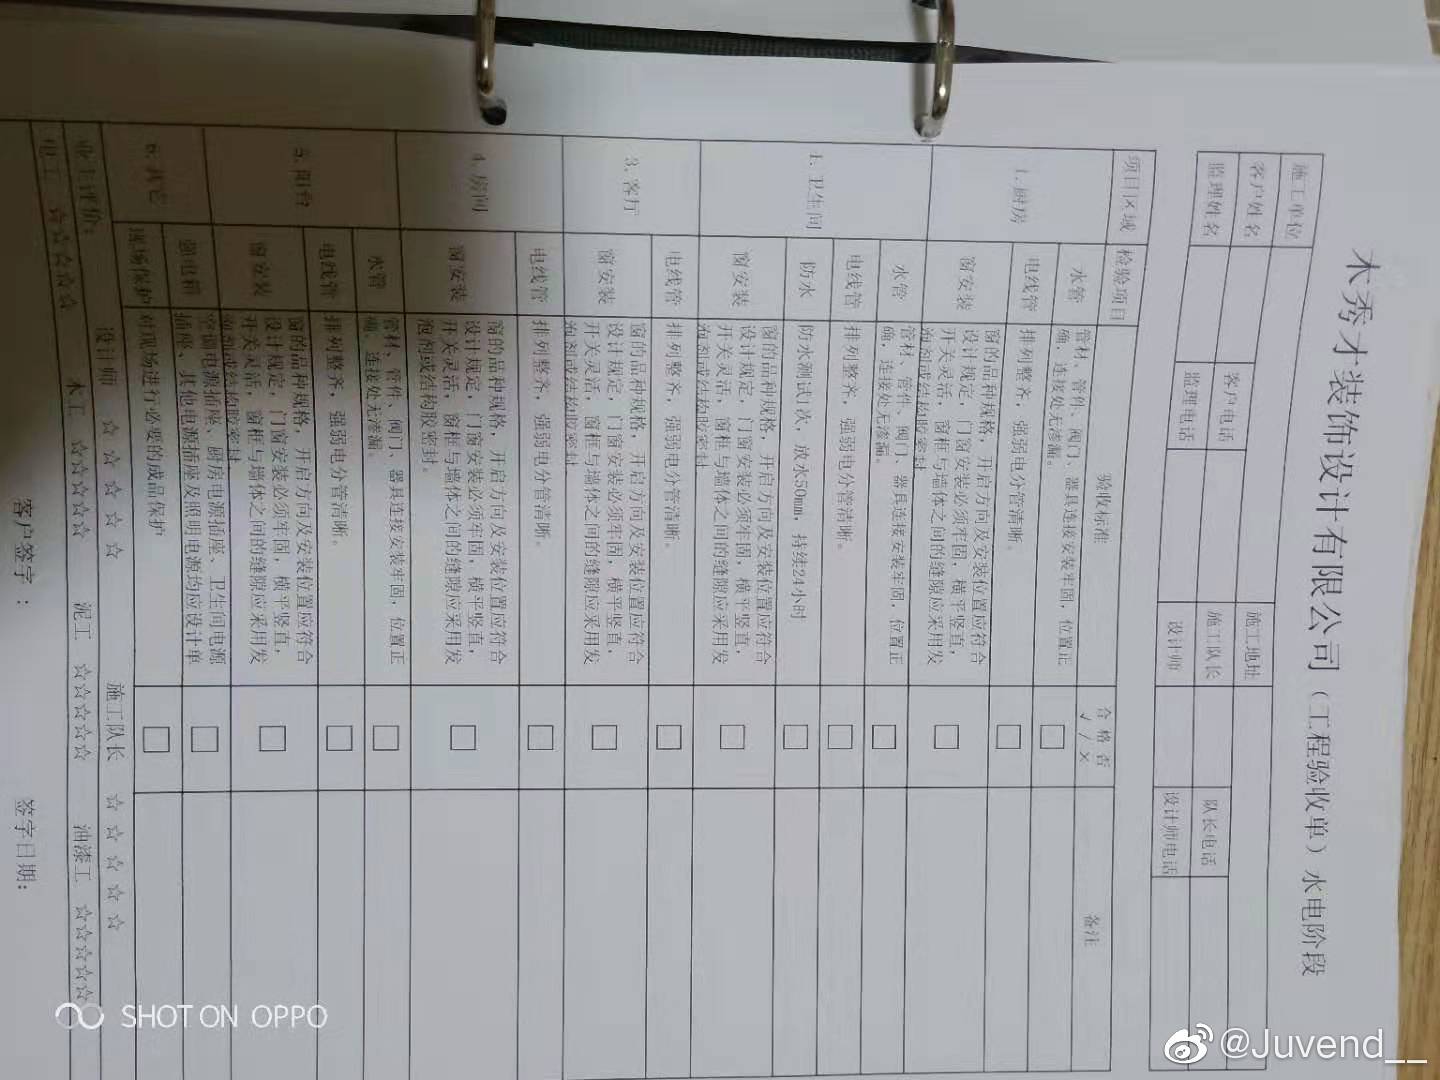 木秀才装饰设计有限公司（工程验收单）水电阶段
施工单位 施工地址
客户姓名 客户电话 施工队长 队长电话
监理姓名 监理电话 设计师 设计师电话
项目区域 检验项目 验收标准 合格 否 √ / × 备注
1.厨房
水管 管材、管件、阀门、器具连接安装牢固，位置正
确，连接处无渗漏。 □
电线管 排列整齐，强弱电分管清晰。 □
窗安装 窗的品种规格，开启方向及安装位置应符合
设计规定，门窗安装必须牢固，横平竖直，
开关灵活，窗框与墙体之间的缝隙应采用发
泡剂或结构胶密封 □
1.卫生间
水管 管材、管件、阀门、器具连接安装牢固，位置正
确，连接处无渗漏。 □
电线管 排列整齐，强弱电分管清晰。 □
防水 防水测试1次，放水50mm，持续24小时 □
窗安装 窗的品种规格，开启方向及安装位置应符合
设计规定，门窗安装必须牢固，横平竖直，
开关灵活，窗框与墙体之间的缝隙应采用发
泡剂或结构胶密封 □
3.客厅
电线管 排列整齐，强弱电分管清晰。 □
窗安装 窗的品种规格，开启方向及安装位置应符合
设计规定，门窗安装必须牢固，横平竖直，
开关灵活，窗框与墙体之间的缝隙应采用发
泡剂或结构胶密封 □
4.房间
电线管 排列整齐，强弱电分管清晰。 □
窗安装 窗的品种规格，开启方向及安装位置应符合
设计规定，门窗安装必须牢固，横平竖直，
开关灵活，窗框与墙体之间的缝隙应采用发
泡剂或结构胶密封。 □
5.阳台
水管 管材、管件、阀门、器具连接安装牢固，位置正
确，连接处无渗漏。 □
电线管 排列整齐，强弱电分管清晰。 □
窗安装 窗的品种规格，开启方向及安装位置应符合
设计规定，门窗安装必须牢固，横平竖直，
开关灵活，窗框与墙体之间的缝隙应采用发
泡剂或结构胶密封 □
6.其它
强电箱 空调电源插座、厨房电源插座、卫生间电源
插座、其他电源插座及照明电源均应设计单 □
现场保护 对现场进行必要的成品保护 □
业主评价： 设计师 ☆ ☆ ☆ ☆ ☆ 施工队长 ☆ ☆ ☆ ☆ ☆
电工 ☆☆☆☆☆ 木工 ☆☆☆☆☆ 泥工 ☆☆☆☆☆ 油漆工 ☆☆☆☆☆
客户签字： 签字日期：
SHOT ON OPPO
@Juvend__